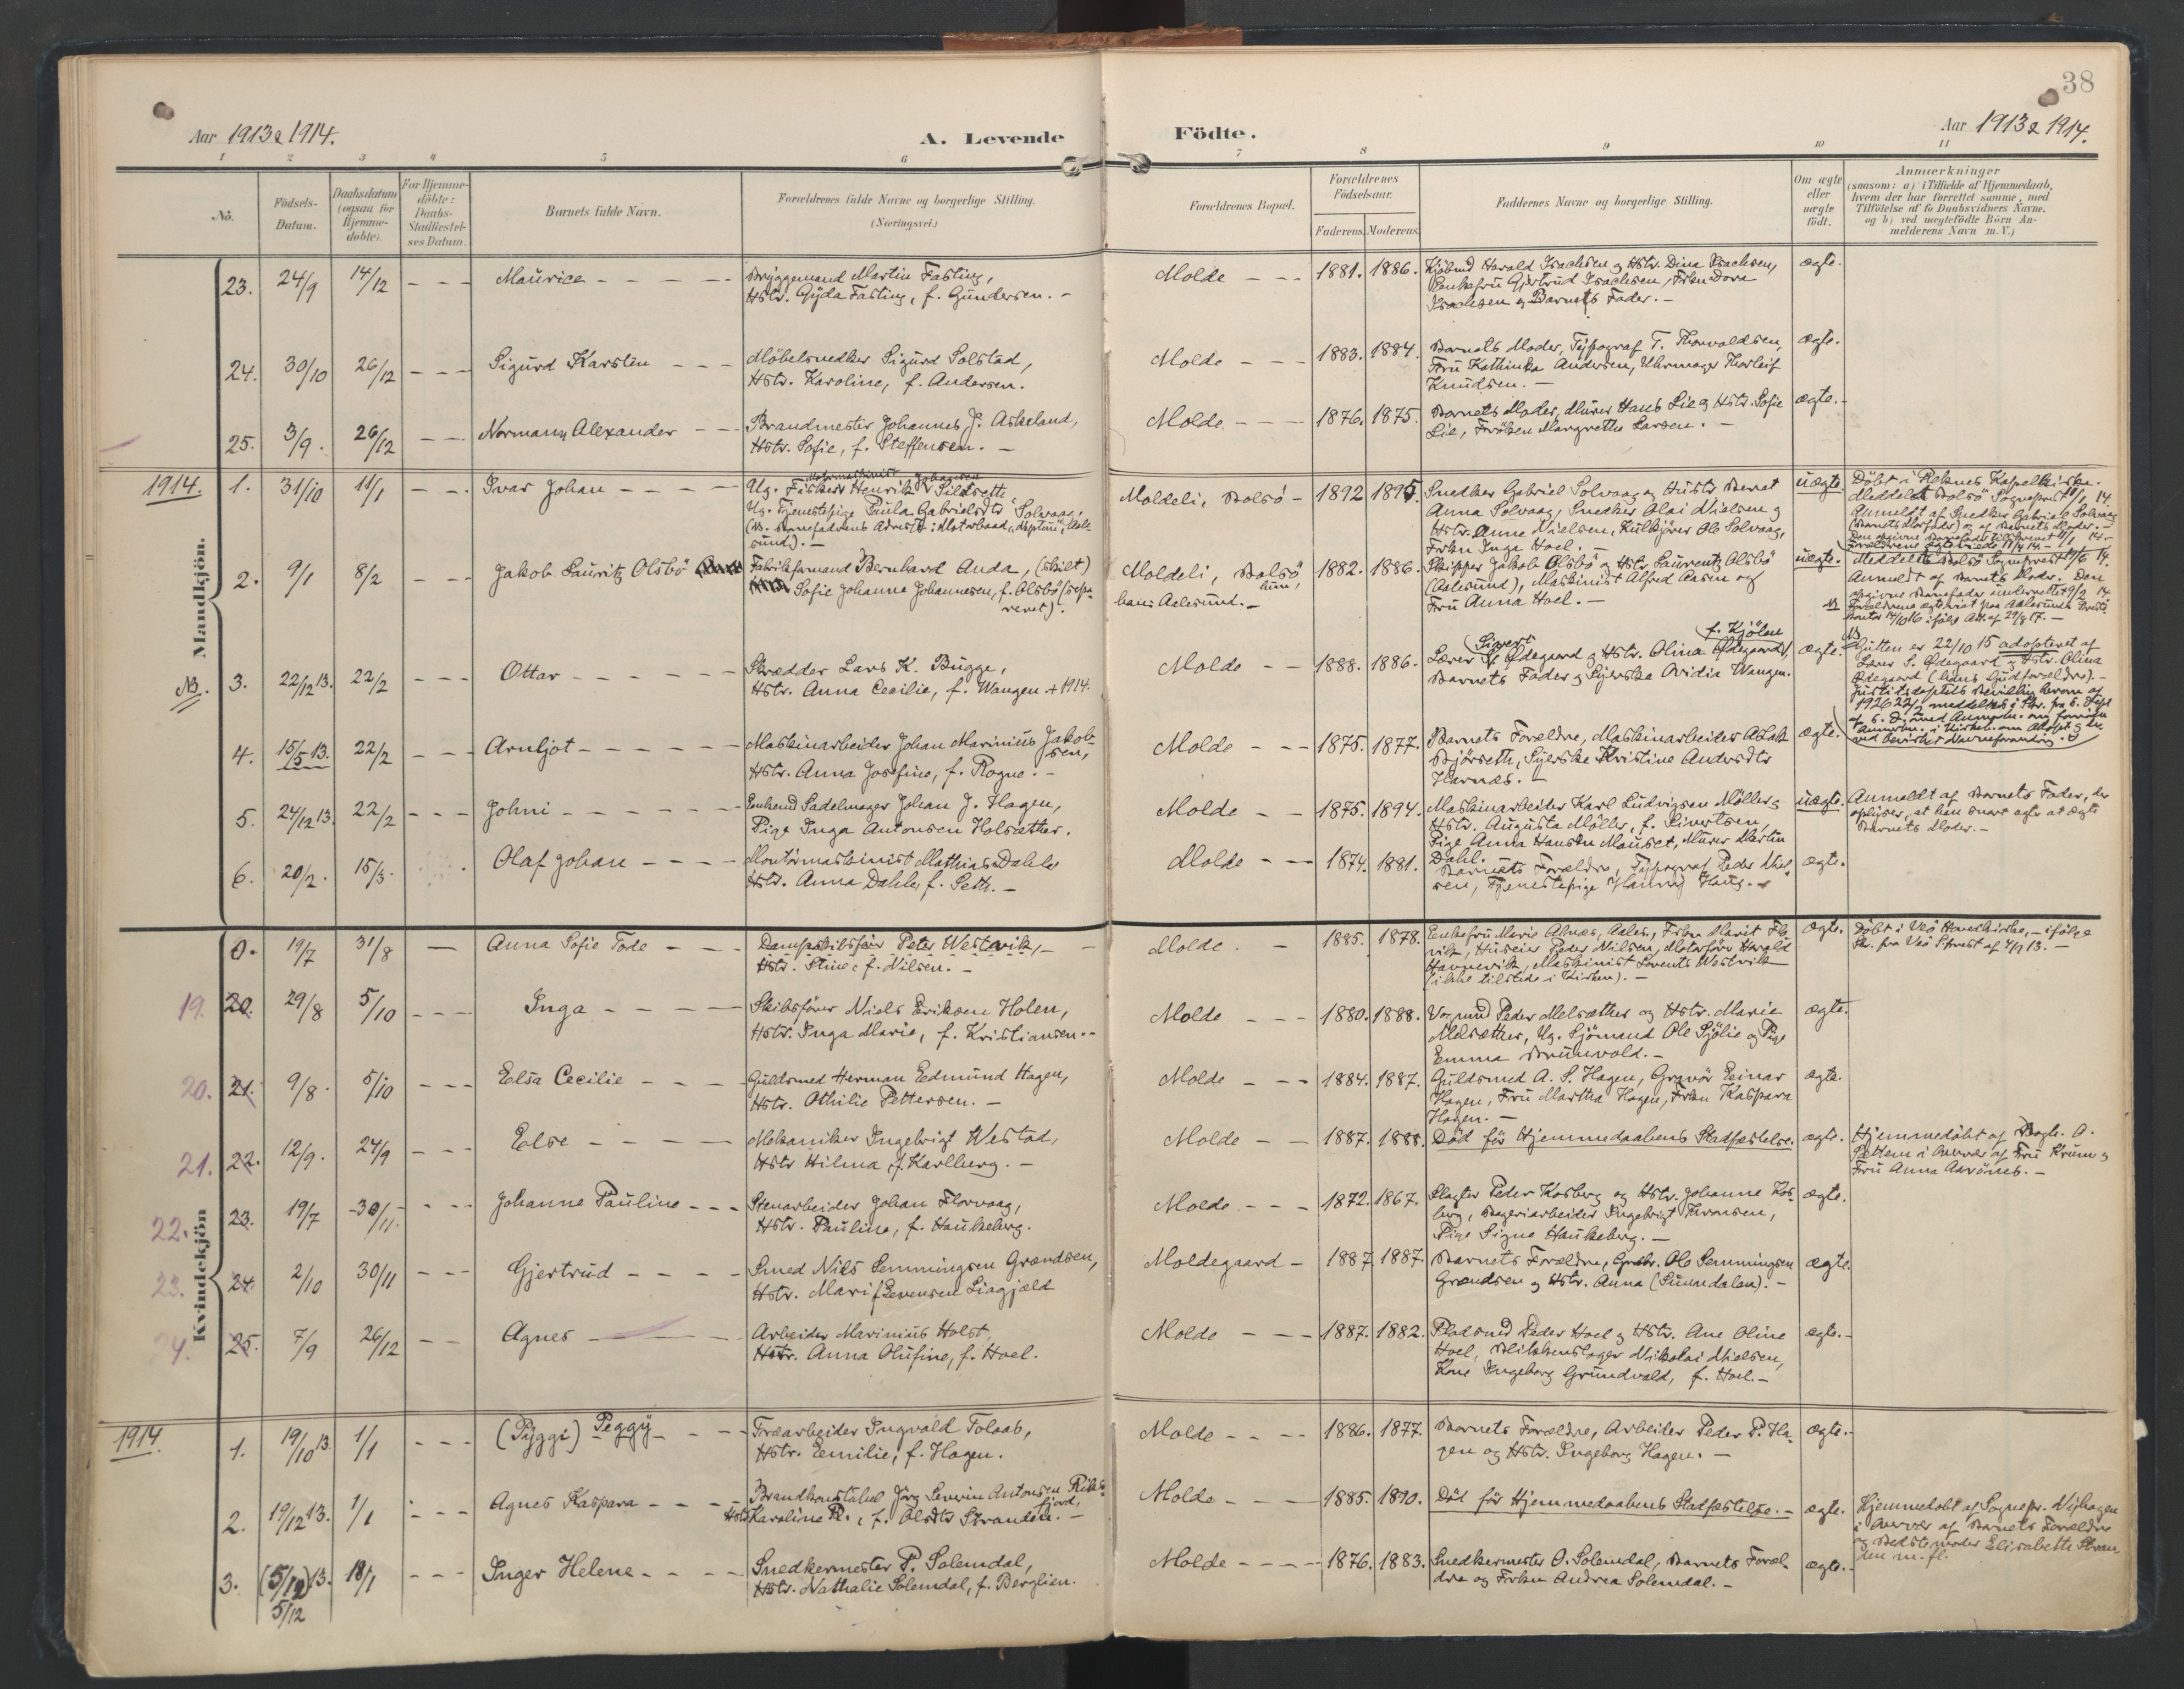 38
Aar 1913 & 1914.
A. Levende Födte.
Aar 1913 & 1914.
1 2 3 4 5 6 7 8 9 10 11
No.
Födsels-Datum.
Daabsdatum (ogsaa for Hjemmedöbte).
For Hjemmedöbte: Daabs-Stadfæstelses Datum.
Barnets fulde Navn.
Forældrenes fulde Navne og borgerlige Stilling.
(Næringsvei.)
Forældrenes Bopæl.
Forældrenes Födselsaar.
Faderens. Moderens.
Faddernes Navne og borgerlige Stilling.
Om ægte eller uægte födt.
Anmærkninger
(saasom: a) i Tilfælde af Hjemmedaab,
hvem der har forrettet samme, med
Tilföielse af to Daabsvidners Navne,
og b) ved uægtefödte Börn Anmelderens Navn m. V.)
Mandkjön.
23. 24/9 14/12 - - - Maurice - - - - Bryggemand Martin Fasting,
Hstr. Gyda Fasting, f. Gundersen. -
Molde - - 1881. 1886. Kjöbmd Harald Isachsen og Hstr. Dina Isachsen,
Enkefru Gjertrud Isachsen, Frkn Dora
Isachsen og Barnets Fader. -
ægte.
24. 30/10 26/12 - - - Sigurd Karsten - - - Möbelsnedker Sigurd Solstad,
Hstr. Karoline, f. Andersen.
Molde - - - 1883. 1884. Barnets Moder, Typograf T. Thorvaldsen,
Fru Kathinka Andersen, Uhrmager Thorleif
Knudsen. -
ægte.
25. 3/9. 26/12 - - - Normann Alexander - - Brandmester Johannes J. Askeland,
Hstr. Sofie, f. Steffensen. -
Molde - - - 1876. 1875. Barnets Moder, Murer Hans Lie og Hstr. Sofie
Lie, Fröken Margrethe Larsen. -
ægte. -
1914. 1. 31/10 11/1 - - Ivar Johan - - - - Ug. Fisker Henrik Johansen Sildseth
Ug. Tjenestepige Paula Gabrielsdtr Solvaag,
Moldeli, Bolsö - 1892 1895. Snedker Gabriel Solvaag og Hustr Beret
Anna Solvaag, Snedker Olai Nielsen og
Hstr. Anne Nielsen, Kulkjörer Ole Solvaag,
Frkn Inga Hoel. -
uægte.
Döbt i Reknes Kapelkirke.
Meddelt Bolsö Sogneprest 11/1 14.
Anmeldt af Snedker Gabriel Solvaag
(Barnets Morfader) og af Barnets Moder. -
2. 9/1 8/2 - - - Jakob Lauritz Olsbö Fabrikformand Bernhard Anda, (skilt)
Sofie Johanna Johannesen, f. Olsbö (separeret).
Moldeli, Bolsö hun,
han: Aalesund. -
1882. 1886. Skipper Jakob Olsbö og Hstr. Laurentz Olsbö
(Aalesund), Maskinist Alfred Aasen og
Fru Anna Hoel. -
uægte. Meddelt Bolsö Sogneprest
Anmeldt af Barnets Moder. Den
opgivne Barnefader underrettet 9/2 14
NB Forældrene ægteviet paa Aalesunds
NB. 3. 22/12 13. 22/2 - - - Ottar - - - - Skrædder Lars K. Bugge,
Hstr. Anna Cecilie, f. Wangen + 1914.
Molde - - 1888. 1886. Lærer Sivert Ødegaard og Hstr. Olina Ødegaard, f. Kjölne
Barnets Fader og Syerske Ovidia Wangen.
ægte. NB Gutten er 22/10 15 adopteret af
Lærer S. Ødegaard og Hstr. Olina
Ødegaard (hans Gudforældre). -
4. 15/5 13. 22/2 - - - Arnljot - - - - Maskinarbeider Johan Marinius Jakobsen,
Hstr. Anna Josefine, f. Rogne. -
Molde - - - 1875. 1877. Barnets Forældre, Maskinarbeider Aslak
Björseth, Syerske Kristine Andersdtr
Harnes. -
ægte.
5. 24/12 13. 22/2 - - - Johni - - - - Enkemd Sadelmager Johan J. Hagen,
Pige Inga Antonsen Holsæther.
Molde - - 1875. 1894. Maskinarbeider Karl Ludvigsen Möller og
Hstr. Augusta Möller, f. Sivertsen,
Pige Anna Hansdn Mauset, Murer Martin
Dahl.
uægte. Anmeldt af Barnets Fader, der
oplyser, at han snart agter at ægte
Barnets Moder. -
6. 20/2. 15/3. Olaf Johan - - - - Montörmaskinist Mathias Dahle
Hstr. Anna Dahle, f. Seth. -
Molde - - 1874. 1881. Barnets Forældre, Typograf Peder Nielsen,
Tjenestepige Hanna Haug. -
ægte.
Kvindekjön
0. 19/7 31/8 - Anna Sofie Tode - - - Dampskibsförer Peter Westavik, -
Hstr. Stine, f. Nilsen. -
Molde. - 1885. 1878. Enkefru Marie Alnæs, Aales., Frkn Marit
Huseier Peder Nilsen, Motorförer Harald
Havnevik, Maskinist Lorents Westavik
(ikke tilstede i Kirken). -
ægte. Döbt i Veö Hovedkirke, - ifölge
Sk. fra Veö Sprest af 4/9 13. -
19. 20. 29/8 5/10 - - - Inga - - - - Skibsförer Niels Eriksen Holen,
Hstr. Inga Marie, f. Kristiansen. -
Molde - - - 1880. 1888. Vognmd Peder Melsæther og Hstr. Marie
Melsæther, Ug. Sjömand Ole Sjölie og Pige
Emma Brunvold. -
ægte.
20. 21. 9/8. 5/10 - - - Elsa Cecilie - - - Guldsmed Herman Edmund Hagen,
Hstr. Othilie Pettersen. -
Molde - - - 1884. 1887. Guldsmed A. S. Hagen, Gravör Einar
Hagen, Fru Martha Hagen, Frkn Kaspara
Hagen. -
ægte.
21. 22. 12/9. 24/9 - - - Else - - - - Mekaniker Ingebrigt Westad,
Hstr Hilma, f. Karlberg. -
Molde - - 1887. 1888. Död för Hjemmedaabens Stadfæstelse. ægte. Hjemmedöbt af Bagh. O.
Sættem i Overvær af Fru Krum og
Fru Anna Aarönes. -
22. 23. 19/7 -30/11. - - - Johanne Pauline - - - Stenarbeider Johan Florvaag,
Hstr. Pauline, f. Haukeberg.
Molde. - - - 1872. 1867. Slagter Peder Kosberg og Hstr. Johanne Kosberg,
Meieriarbeider Ingebrigt Aronsen,
Pige Signe Haukeberg. -
ægte.
23. 24. 2/10 30/11 - - - Gjertrud - - - - Smed Nils Semmingsen Grændsen,
Hstr. Mari f. Evensen Liagjæld
Moldegaard - 1887 1887. Barnets Forældre, Grdbr. Ole Semmingsen
Grændsen og Hstr. Anna (Sunndalen). -
ægte.
24. 25. 7/9 26/12 - - Agnes - - - Arbeider Marinius Holst,
Hstr. Anna Olufine, f. Hoel.
Molde - - - 1887. 1882. Pladsmd Peder Hoel og Hstr. Ane Oline
Hoel, Blikkenslager Nikolai Nielsen,
Kone Ingeborg Grundvald, f. Hoel. -
ægte. -
1914. 1. 19/10 13. 1/1 - - - (Pyggi) Peggy - - - Træarbeider Ingvald Tolaas,
Hstr. Emilie, f. Hagen.
Molde - - - - 1886. 1877. Barnets Forældre, Arbeider Peder P. Hagen
og Hstr. Ingeborg Hagen. -
ægte. -
2. 19/12 13. 1/1 - - - Agnes Kaspara - - - Brandkonstabel Jörg Severin Antonsen Riksfjord,
Hstr Karoline R., f. Olsdtr Stranden. -
Molde - - - 1885. 1890. Död för Hjemmedaabens Stadfæstelse. - ægte. Hjemmedöbt af Sognepr. Nyhagen
i Overvær af Barnets Forældre
og Bedstemoder Elisabeth Stranden
m. fl.
3. (5/12) 13. 18/1 - - - Inger Helene - - - - Snedkermester P. Solemdal,
5/12
Hstr. Nathalie Solemdal, f. Berglien.
Molde - - - - 1876. 1883. Snedkermester O. Solemdal, Barnets Forældre
og Frkn Andrea Solemdal. -
ægte. -